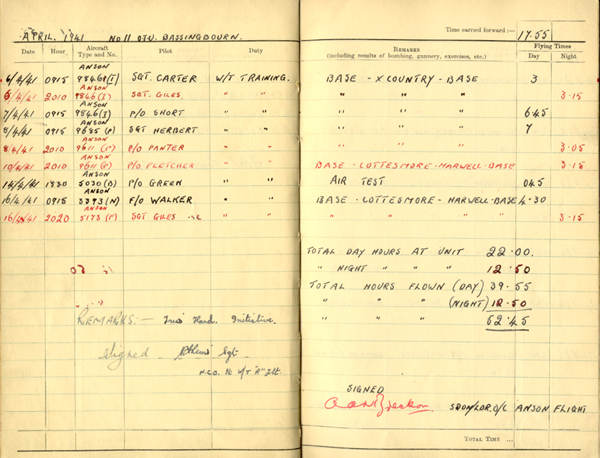 APRIL. 1941 No 11 OTU. BASSINGBOURN.
Time carried forward:— 17.55
Date Hour Aircraft Type and No. Pilot Duty REMARKS (including results of bombing, gunnery, exercises, etc.) Flying Times Day Night
ANSON
6/4/41 0915 (I) SGT. CARTER W/T TRAINING. BASE - X COUNTRY - BASE 3
ANSON
6/4/41 2010 9846 (I) SGT. GILES " " " " 3.15
ANSON
7/4/41 0915 9846 (I) P/O SHORT " " " " 6.45
ANSON
8/4/41 0915 9685 (P) SGT HERBERT " " " " 7
ANSON
8/4/41 2010 9611 (P) P/O PANTER " " " " 3.05
ANSON
10/4/41 2010 9611 (P) P/O FLETCHER " " BASE - LOTTESMORE - HARWELL - BASE 3.15
ANSON
14/4/41 1830 5030 (B) P/O GREEN " " AIR TEST 045
ANSON
16/4/41 0915 3393 (N) F/O WALKER " " BASE - LOTTESMORE - HARWELL - BASE 4.30
ANSON
16/4/41 2020 5173 (P) SGT GILES " " " " " " 3.15
TOTAL DAY HOURS AT UNIT 22.00.
" NIGHT " " " 12.50
TOTAL HOURS FLOWN (DAY) 39.55
" " " (NIGHT) 12.50
" " " 52.45
REMARKS:— Hard. Initiative.
Signed Sgt.
N.C.O. W/T "A" Flt
SIGNED
SQDN/LDR. O/C ANSON FLIGHT
TOTAL TIME ...